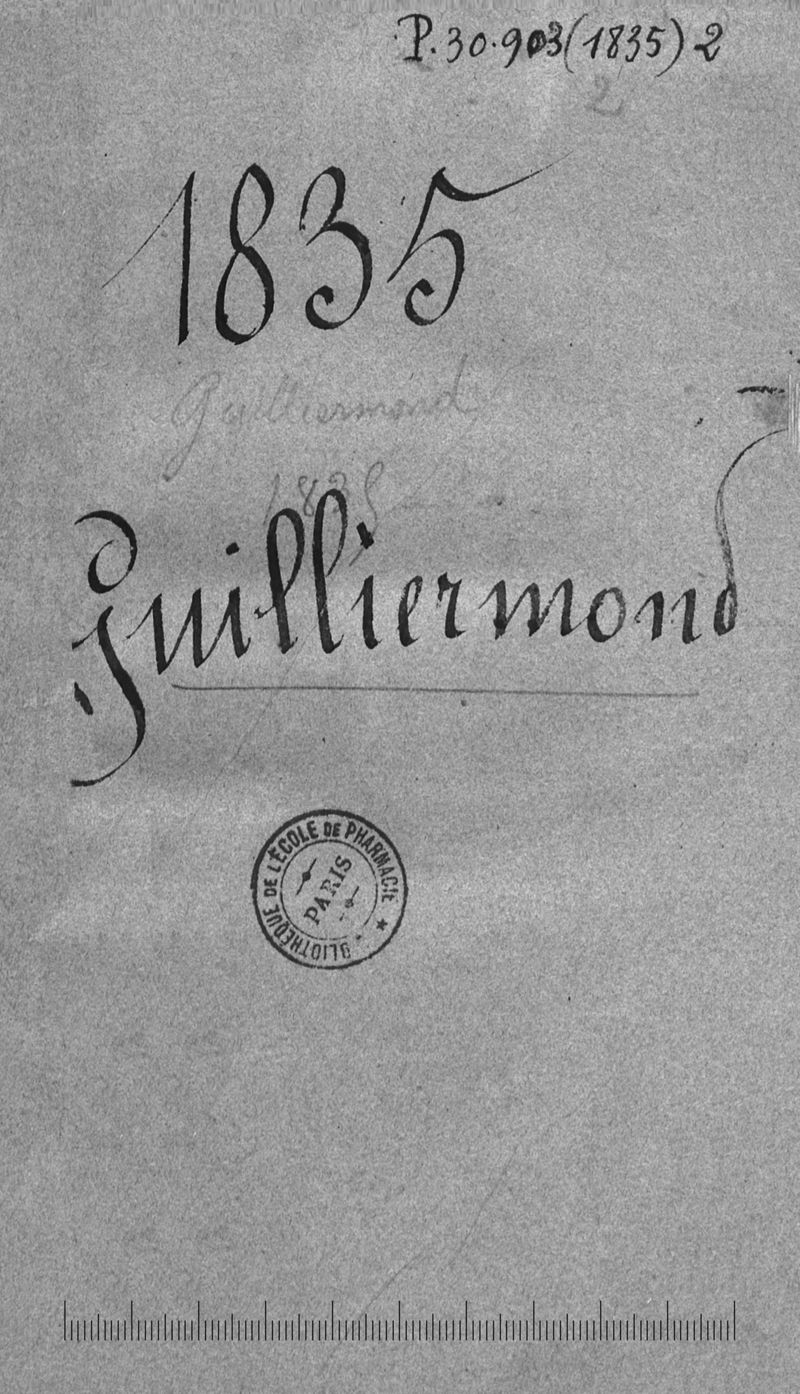 P. 30.903 (1835) 2
2
1835
Guilliermond
1835
Guilliermond
BIBLIOTHÈQUE DE L'ÉCOLE DE PHARMACIE
PARIS